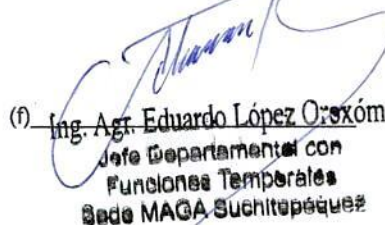 (f) Ing. Agr. Eduardo López Orexóm
Jefe Departamental con
Funciones Temporales
Sede MAGA Suchitepéquez